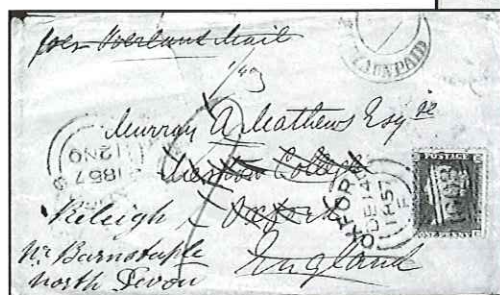 per Overland Mail
UNPAID
Murray A Mathews Esqre
Merton College
Raleigh
Oxford
Nr Barnstaple
North Devon
England
OXFORD
DE 14
1857
F
1857
POSTAGE
ONE PENNY